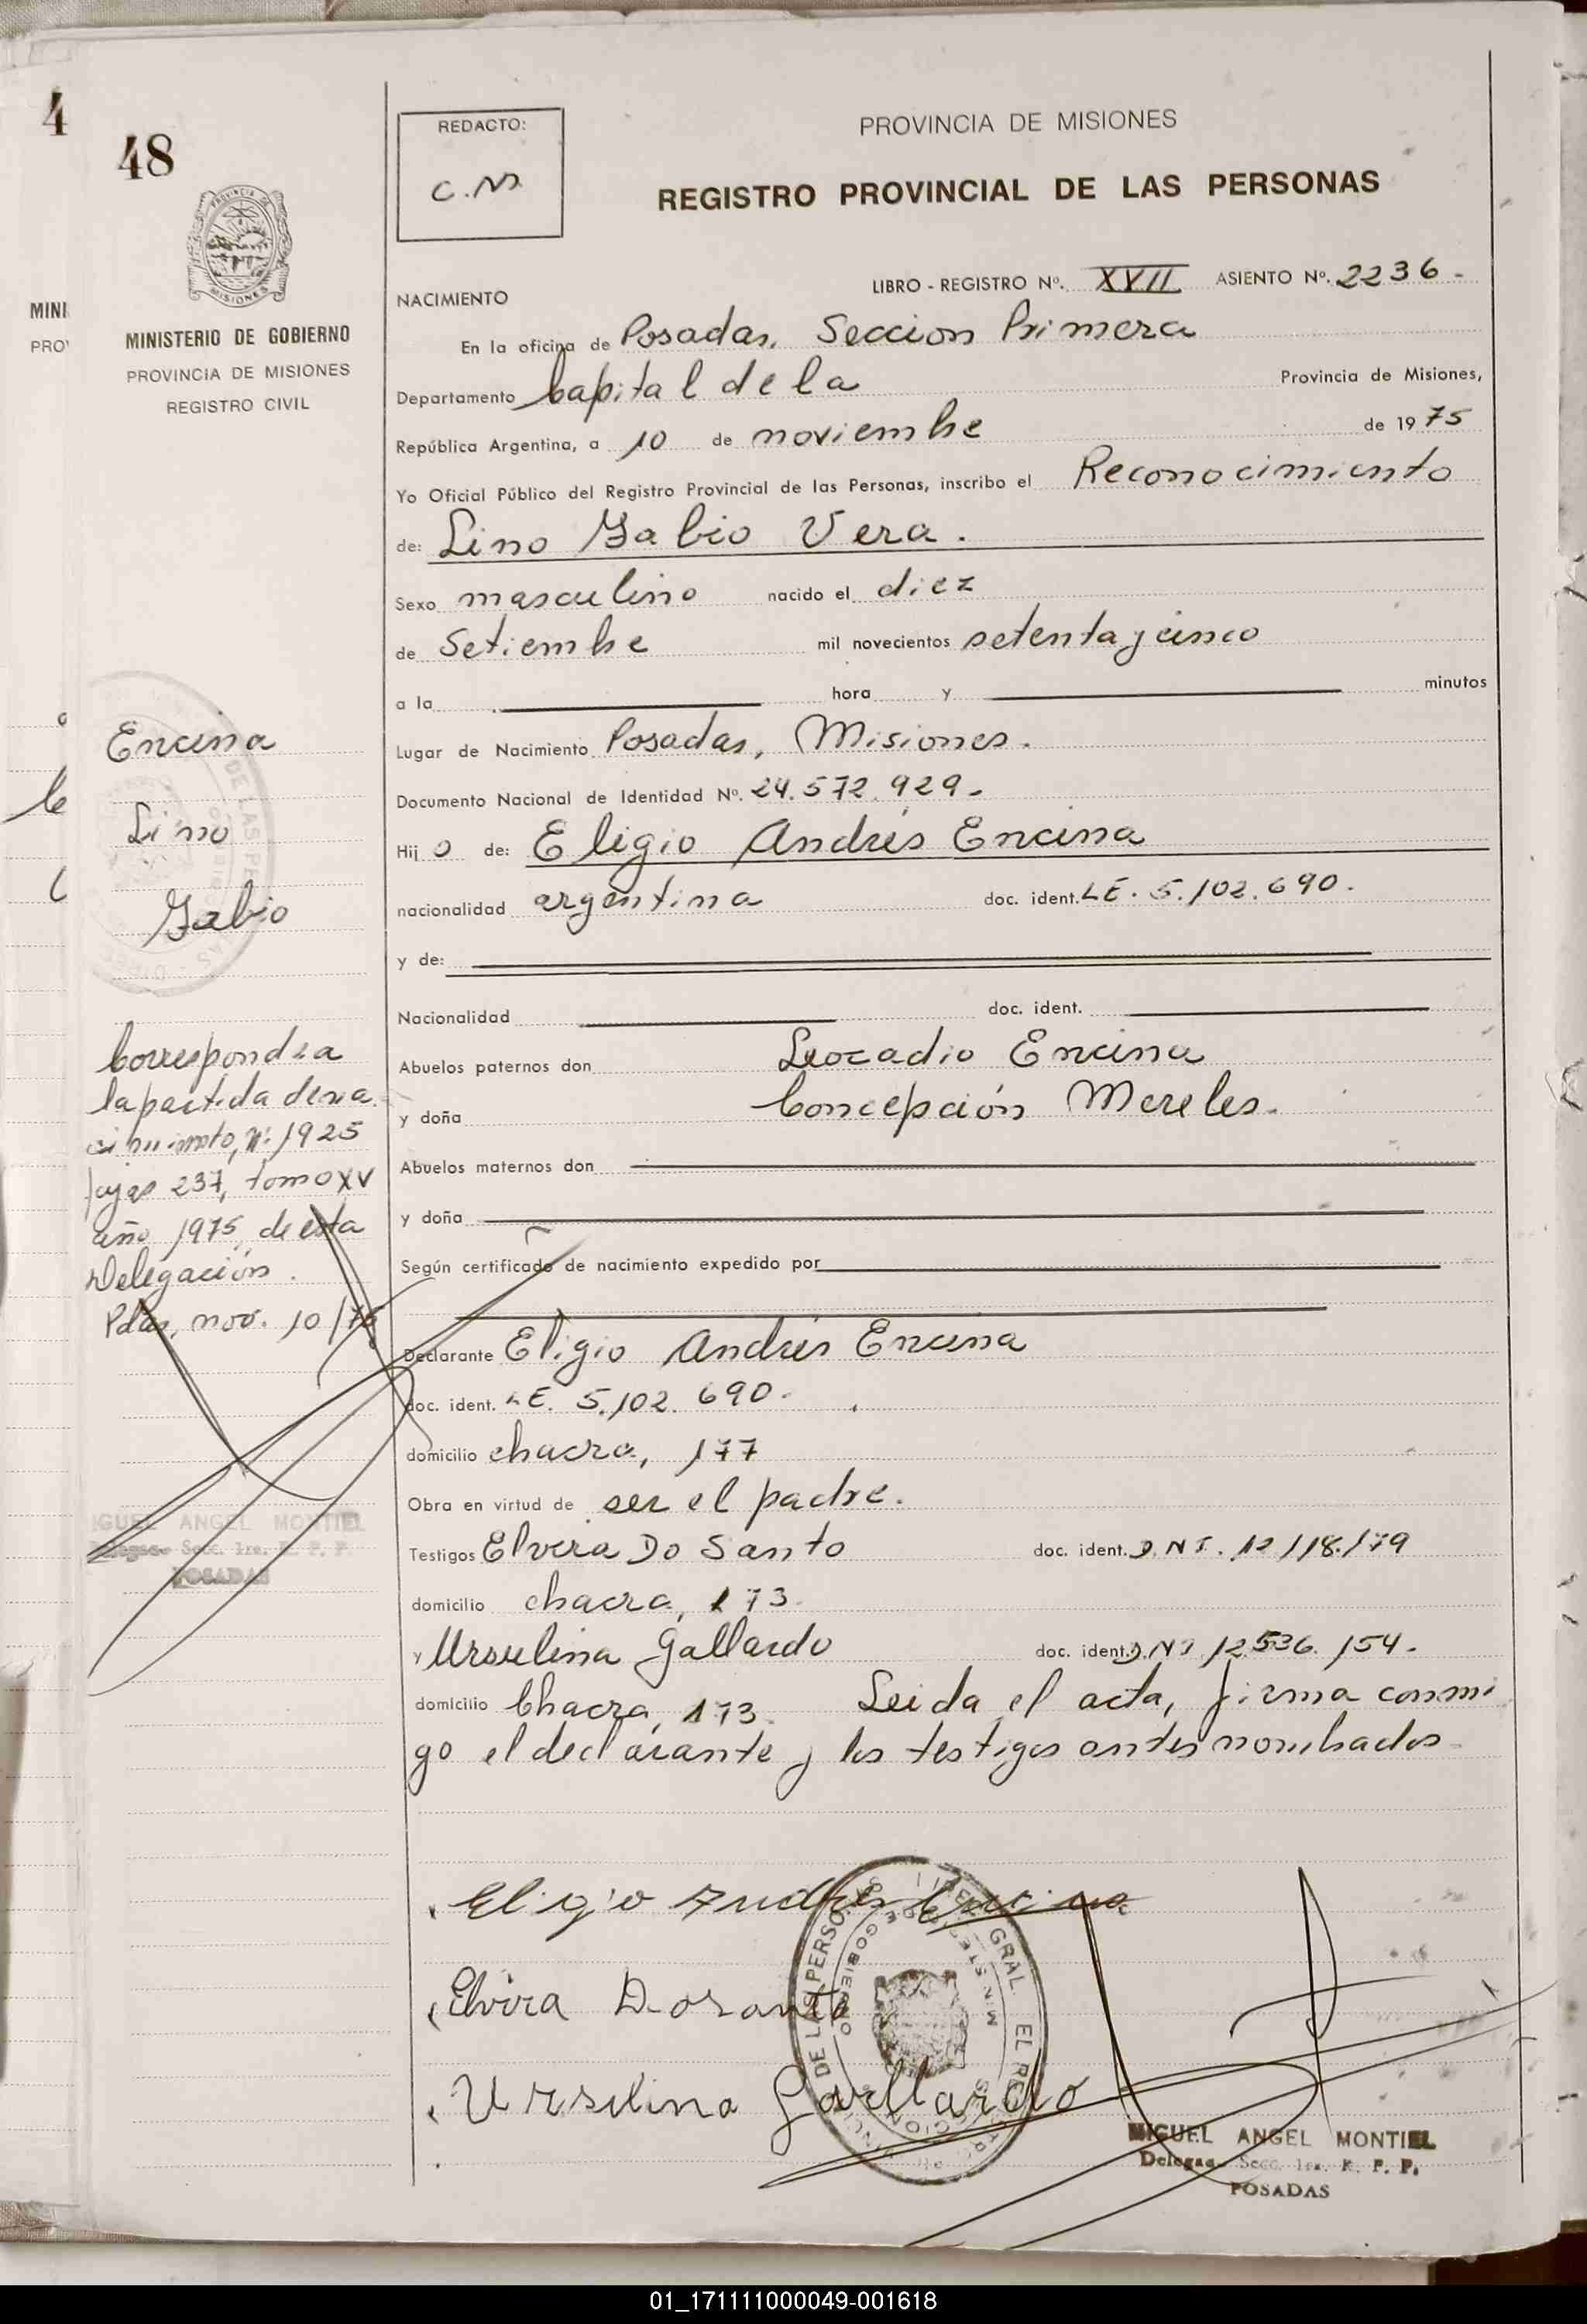 4
48
MINI
PRO
REDACTO:
C.M.
PROVINCIA DE MISIONES
REGISTRO PROVINCIAL DE LAS PERSONAS
MINISTERIO DE GOBIERNO
PROVINCIA DE MISIONES
REGISTRO CIVIL
LIBRO - REGISTRO Nº. XVII ASIENTO Nº. 2236 -
NACIMIENTO
En la oficina de Posadas, Seccion Primera
Departamento Capital de la Provincia de Misiones,
República Argentina, a 10 de noviembre de 1975
Yo Oficial Público del Registro Provincial de las Personas, inscribo el Reconocimiento
de: Lino Fabio Vera.
Sexo masculino nacido el diez
de Setiembre mil novecientos setenta y cinco
a la hora y minutos
Lugar de Nacimiento Posadas, Misiones.
Documento Nacional de Identidad Nº. 24.572.929-
Hij o de: Eligio Andrés Encina
nacionalidad argentina doc. ident. LE. 5.102.690.
y de:
Nacionalidad doc. ident.
Abuelos paternos don Leocadio Encina
y doña Concepción Mereles.
Abuelos maternos don
y doña
Según certificado de nacimiento expedido por
Declarante Eligio Andrés Encina
doc. ident. LE. 5.102.690.
domicilio chacra, 177
Obra en virtud de ser el padre.
Testigos Elvira Do Santo doc. ident. D.N.I. 12.118.179
domicilio chacra, 173.
y Urselina Gallardo doc. ident. D.N.I. 12.536.154.
domicilio Chacra, 173. Leida el acta, firma conmi
go el declarante y los testigos antes nombrados.
Encina
Lino
Fabio
Corresponde a
la partida de na
cimiento, Nº 1925
fojas 237, tomo XV
año 1975, de esta
Delegación.
Pdas, nov. 10/75
MIGUEL ANGEL MONTIEL
Secc. 1ra. R. P. P.
POSADAS
Eligio Andres Encina
Elvira Dosanto
Urselina Gallardo
MIGUEL ANGEL MONTIEL
Delegado Secc. 1ra. R. P. P.
POSADAS
01_171111000049-001618